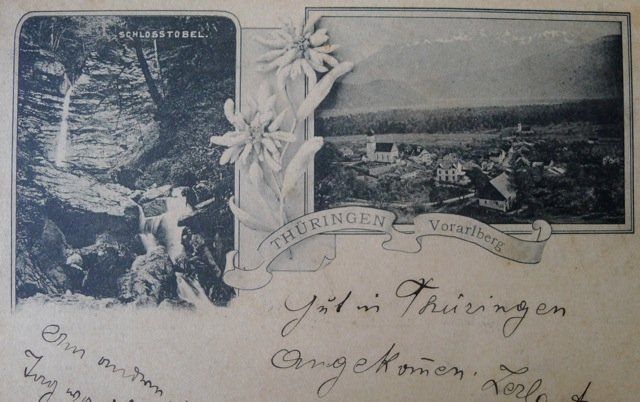 SCHLOSSTOBEL.
THÜRINGEN Vorarlberg
Gut in Thüringen
Angekom̄en.
andren
Tag